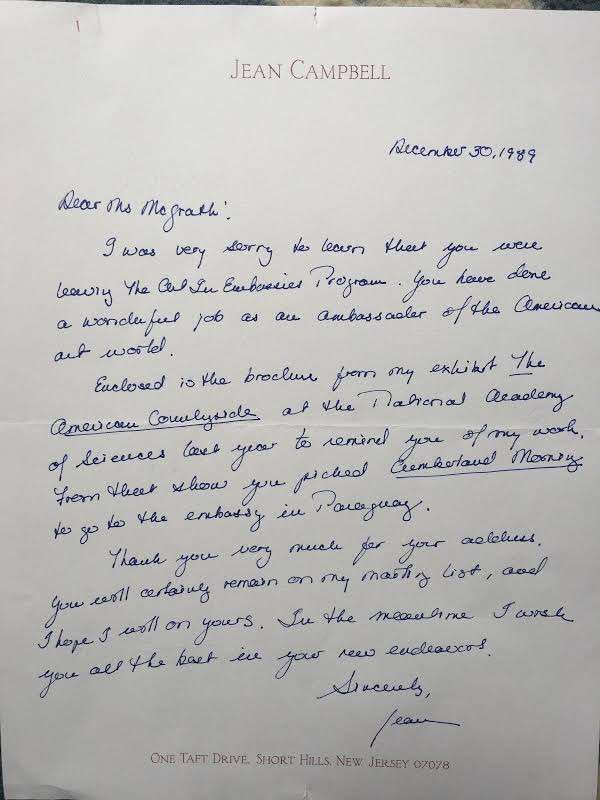 JEAN CAMPBELL
December 30, 1989
Dear Ms McGrath:
I was very sorry to learn that you were
leaving The Art In Embassies Program. You have done
a wonderful job as an ambassador of the American
art world.
Enclosed is the brochure from my exhibit The
American Countryside at the National Academy
of Sciences last year to remind you of my work.
From that show you picked Cumberland Morning
to go to the embassy in Paraguay.
Thank you very much for your address.
You will certainly remain on my mailing list, and
I hope I will on yours. In the meantime I wish
you all the best in your new endeavors.
Sincerely,
Jean
ONE TAFT DRIVE, SHORT HILLS, NEW JERSEY 07078